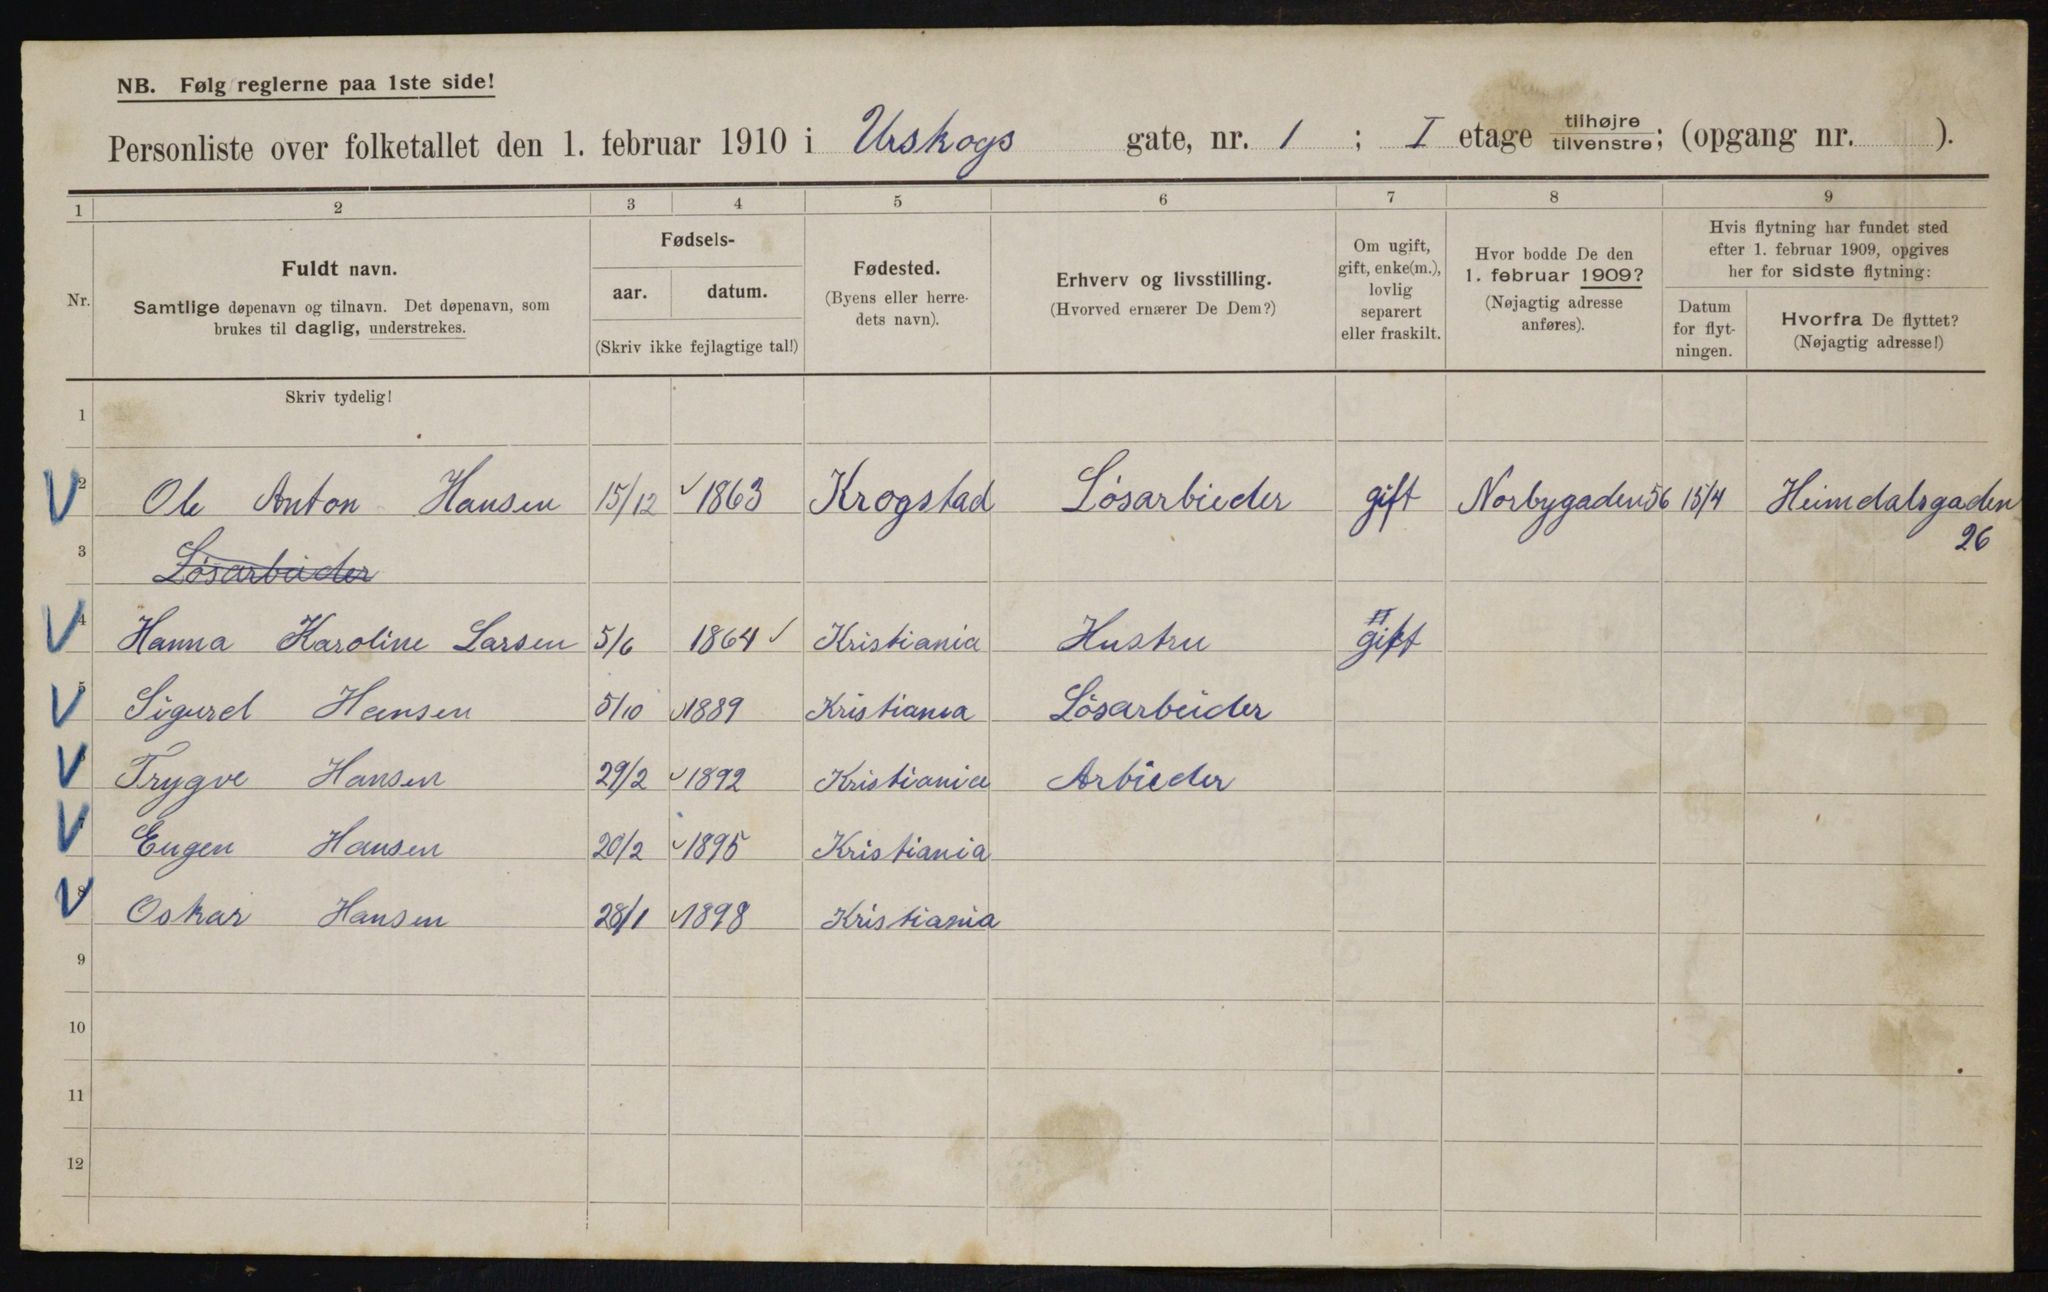 NB. Følg reglerne paa 1ste side!
Personliste over folketallet den 1. februar 1910 i Urskogs gate, nr. 1 ; I etage tilhøjre tilvenstre; (opgang nr. ).
1 2 3 4 5 6 7 8 9
Nr.
Fuldt navn.
Samtlige døpenavn og tilnavn. Det døpenavn, som
brukes til daglig, understrekes.
Fødsels-
aar. datum.
(Skriv ikke fejlagtige tal!)
Fødested.
(Byens eller herre-
dets navn).
Erhverv og livsstilling.
(Hvorved ernærer De Dem?)
Om ugift,
gift, enke(m.),
lovlig
separert
eller fraskilt.
Hvor bodde De den
1. februar 1909?
(Nøjagtig adresse
anføres).
Hvis flytning har fundet sted
efter 1. februar 1909, opgives
her for sidste flytning:
Datum
for flyt-
ningen.
Hvorfra De flyttet?
(Nøjagtig adresse!)
Skriv tydelig!
1
2 Ole Anton Hansen 15/12 1863 Krogstad Løsarbieder gift Norbygaden 56 15/4 Heimdalsgaden
26
3 Løsarbeider
4 Hanna Karoline Larsen 5/6 1864 Kristiania Hustru gift
5 Sigurd Hansen 5/10 1889 Kristiania Løsarbeider
Trygve Hansen 29/2 1892 Kristiania Arbieder
Eugen Hansen 20/2 1895 Kristiania
8 Oskar Hansen 28/1 1898 Kristiania
9
10
11
12